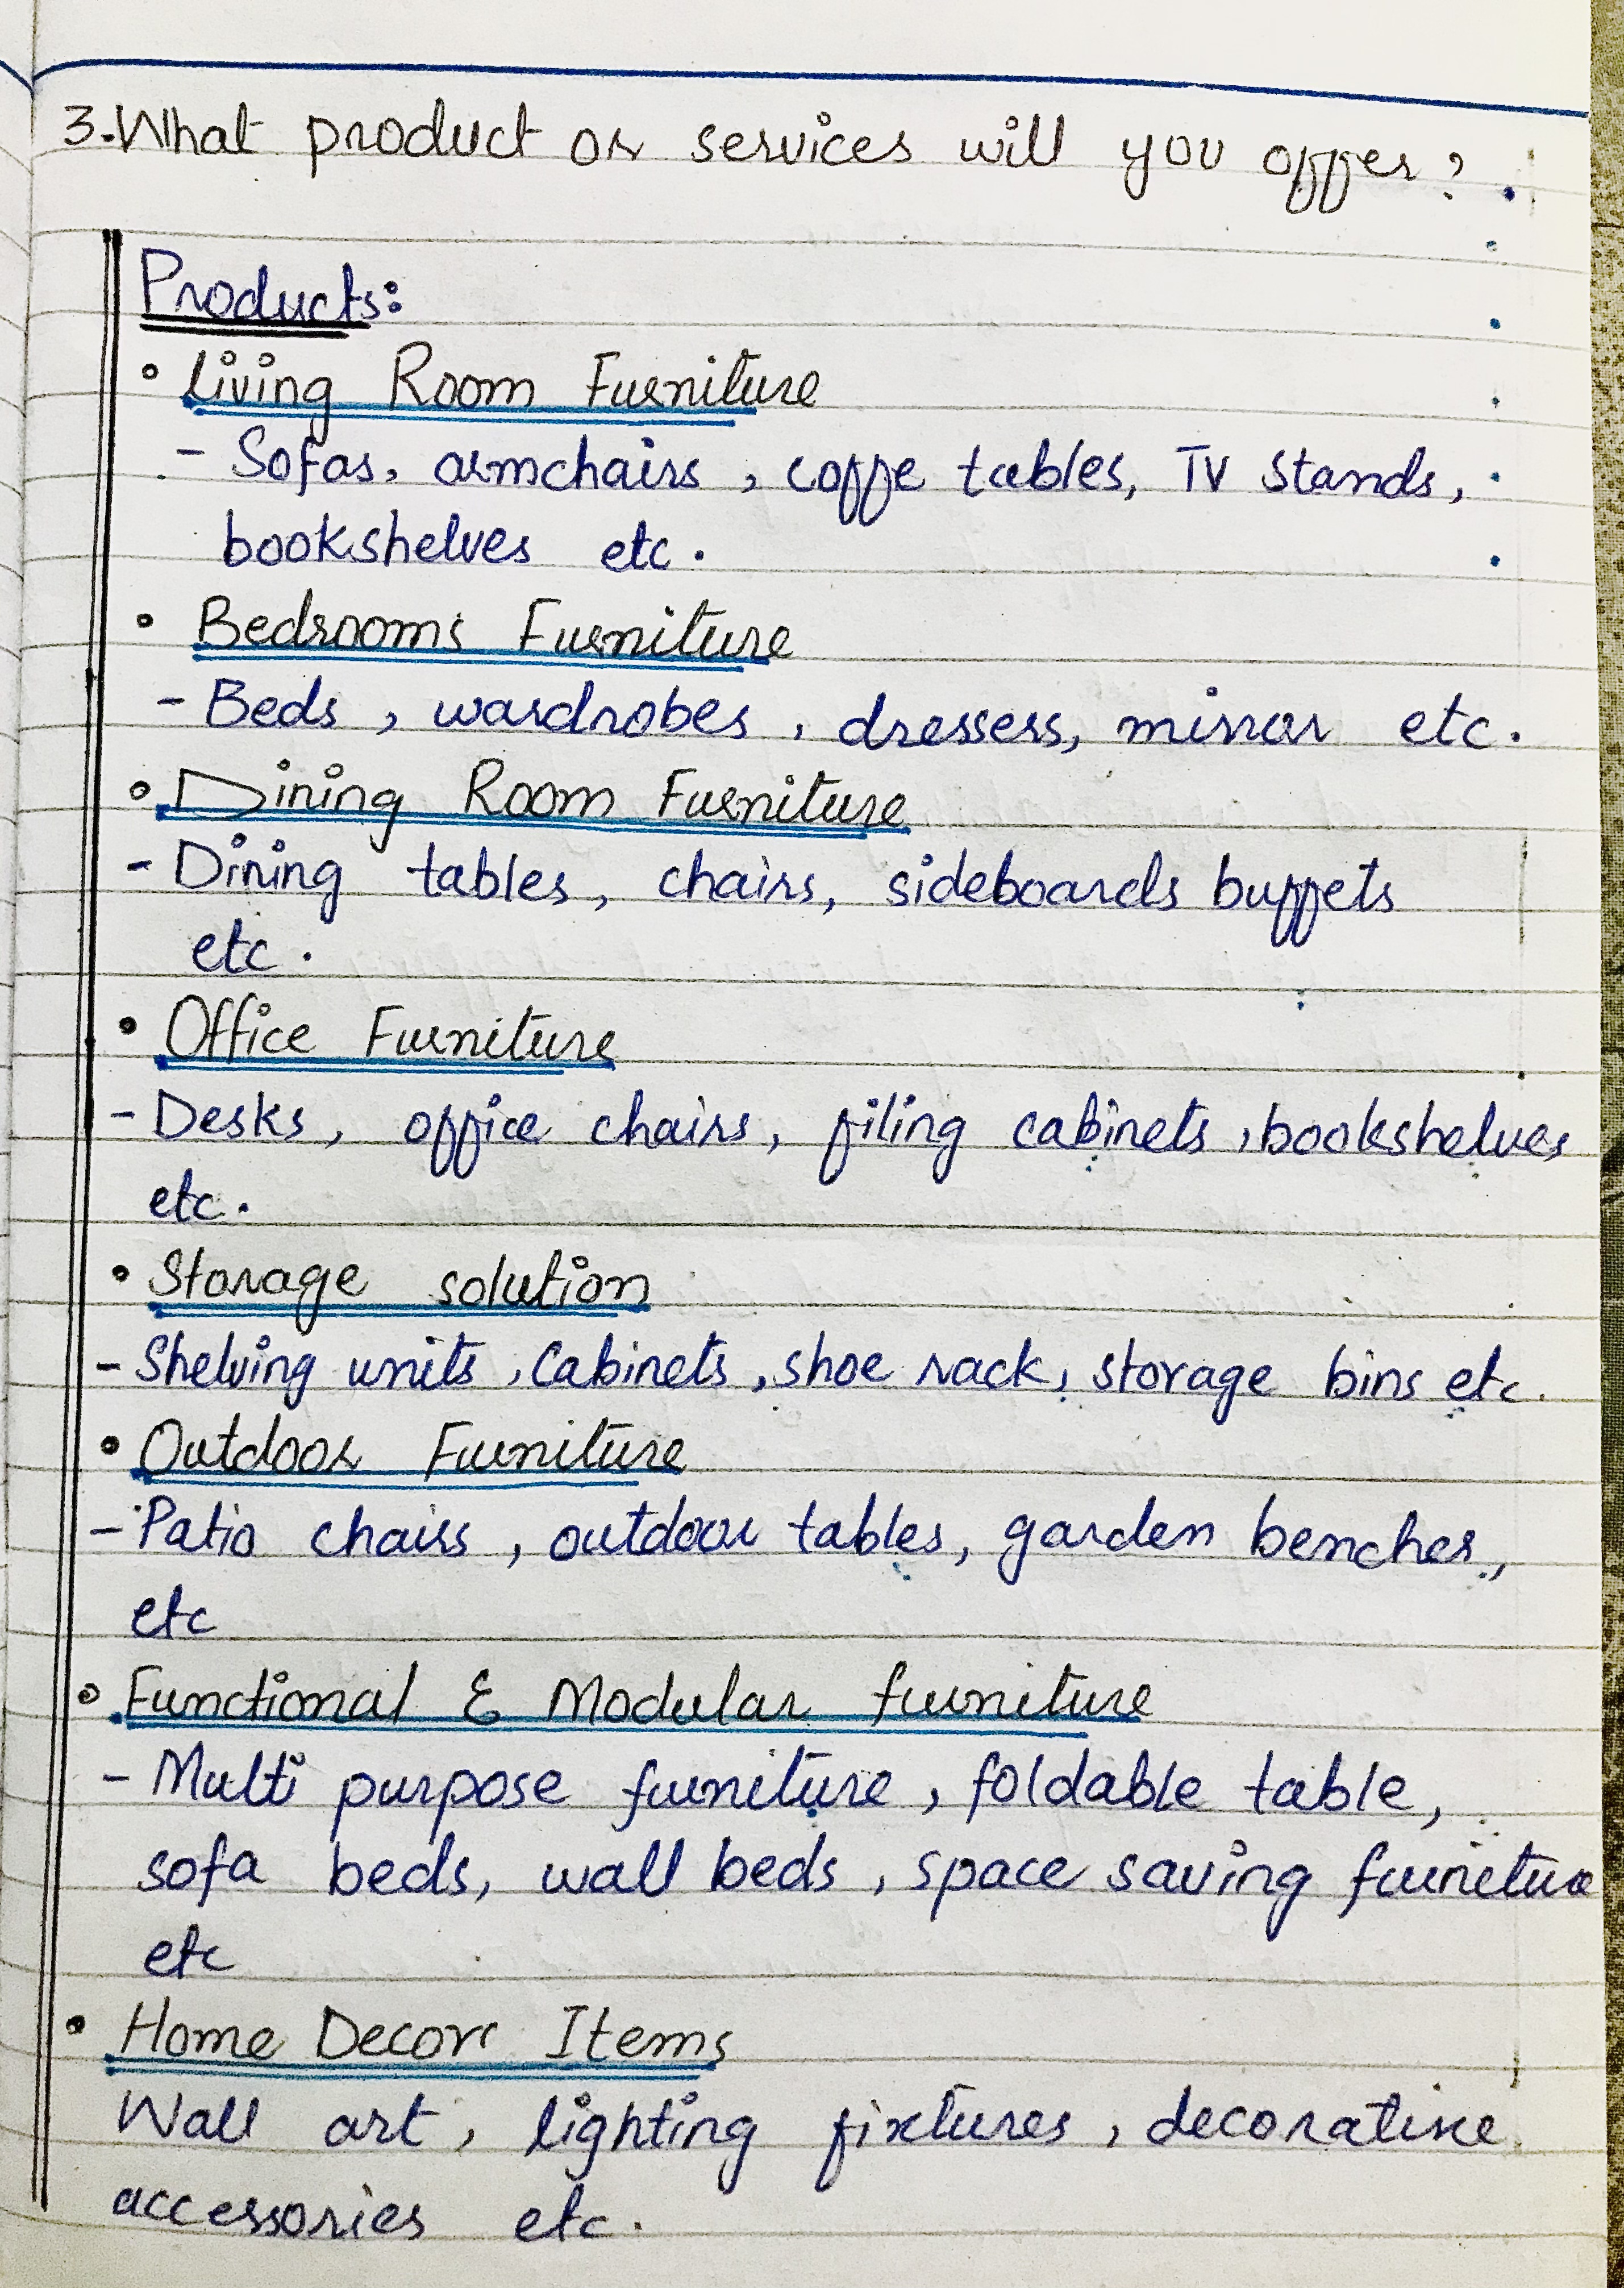 3. What product or services will you offer?
Products:
• Living Room Furniture
- Sofas, armchairs, coffe tables, TV stands,
bookshelves etc.
• Bedrooms Furniture
- Beds, wardrobes, dressers, mirror etc.
• Dining Room Furniture
- Dining tables, chairs, sideboards buffets
etc.
• Office Furniture
- Desks, office chairs, filing cabinets, bookshelves
etc.
• Storage solution
- Shelving units, Cabinets, shoe rack, storage bins etc.
• Outdoor Furniture
- Patio chairs, outdoor tables, garden benches,
etc
• Functional & Modular furniture
- Multi purpose furniture, foldable table,
sofa beds, wall beds, space saving furniture
etc
• Home Decorr Items
Wall art, lighting fixtures, decorative
accessories etc.